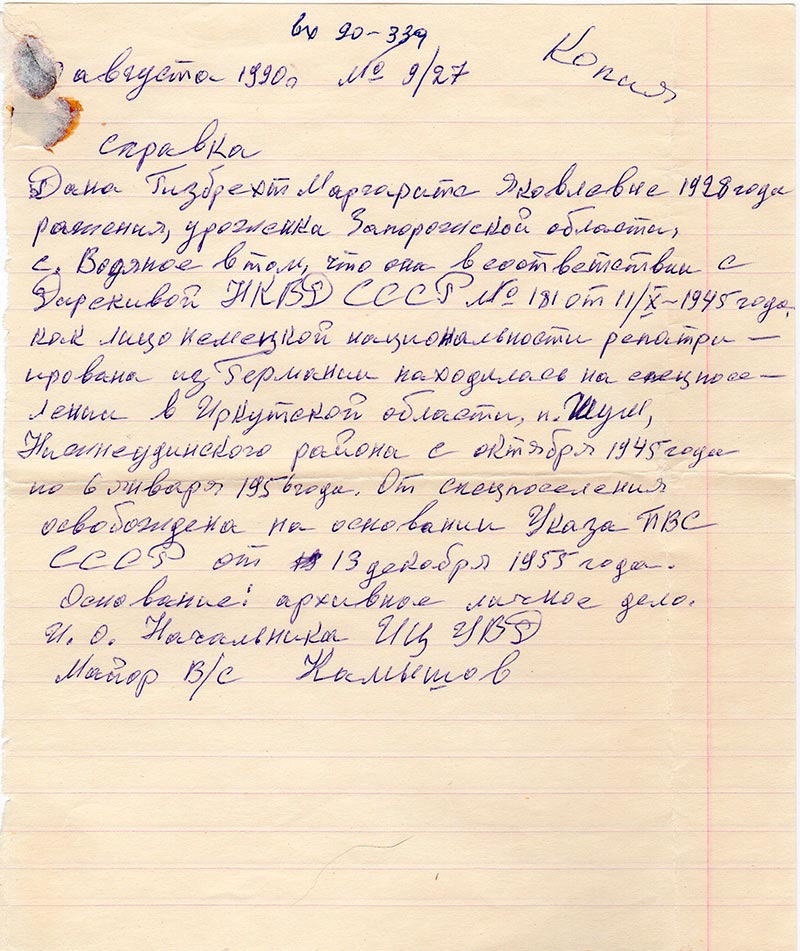 вх 90-339
августа 1990г № 9/27
Копия
справка
Дана Гизбрехт Маргарите Яковлевне 1928 года
ражения, уроженка Запорожской области,
с. Водяное в том, что она в соответствии с
Дирекивой НКВД СССР № 181 от 11/X-1945 года,
как лицо немецкой национальности репатри-
ирована из Германии находилась на спецпосе-
лении в Иркутской области, п. Шум,
Нижнеудинского района с октября 1945 года
по 6 января 1956 года. От спецпоселения
освобождена на основании Указа ПВС
СССР от 13 декабря 1955 года.
Основание: архивное личное дело.
И. О. Начальника ИЦ УВД
Майор В/С Камышов